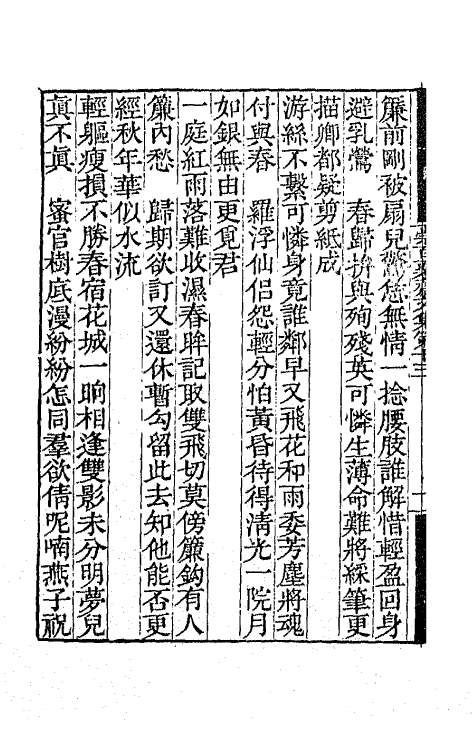 簾前剛被扇兒驚怹無情一捻腰肢誰解惜輕盈回身
避乳鶯　春歸拚與殉殘英可憐生薄命難將綵筆更
描卿都疑剪紙成
游絲不繫可憐身竟誰鄰早又飛花和雨委芳塵將魂
付與春　羅浮仙侶怨輕分怕黃昏待得淸光一院月
如銀無由更覓君
一庭紅雨落難收濕春眸記取雙飛切莫傍簾鈎有人
簾內愁　歸期欲訂又還休暫勾留此去知他能否更
經秋年華似水流
輕軀瘦損不勝春宿花城一晌相逢雙影未分明夢兒
眞不眞　蜜官樹底漫紛紛怎同羣欲倩呢喃燕子祝